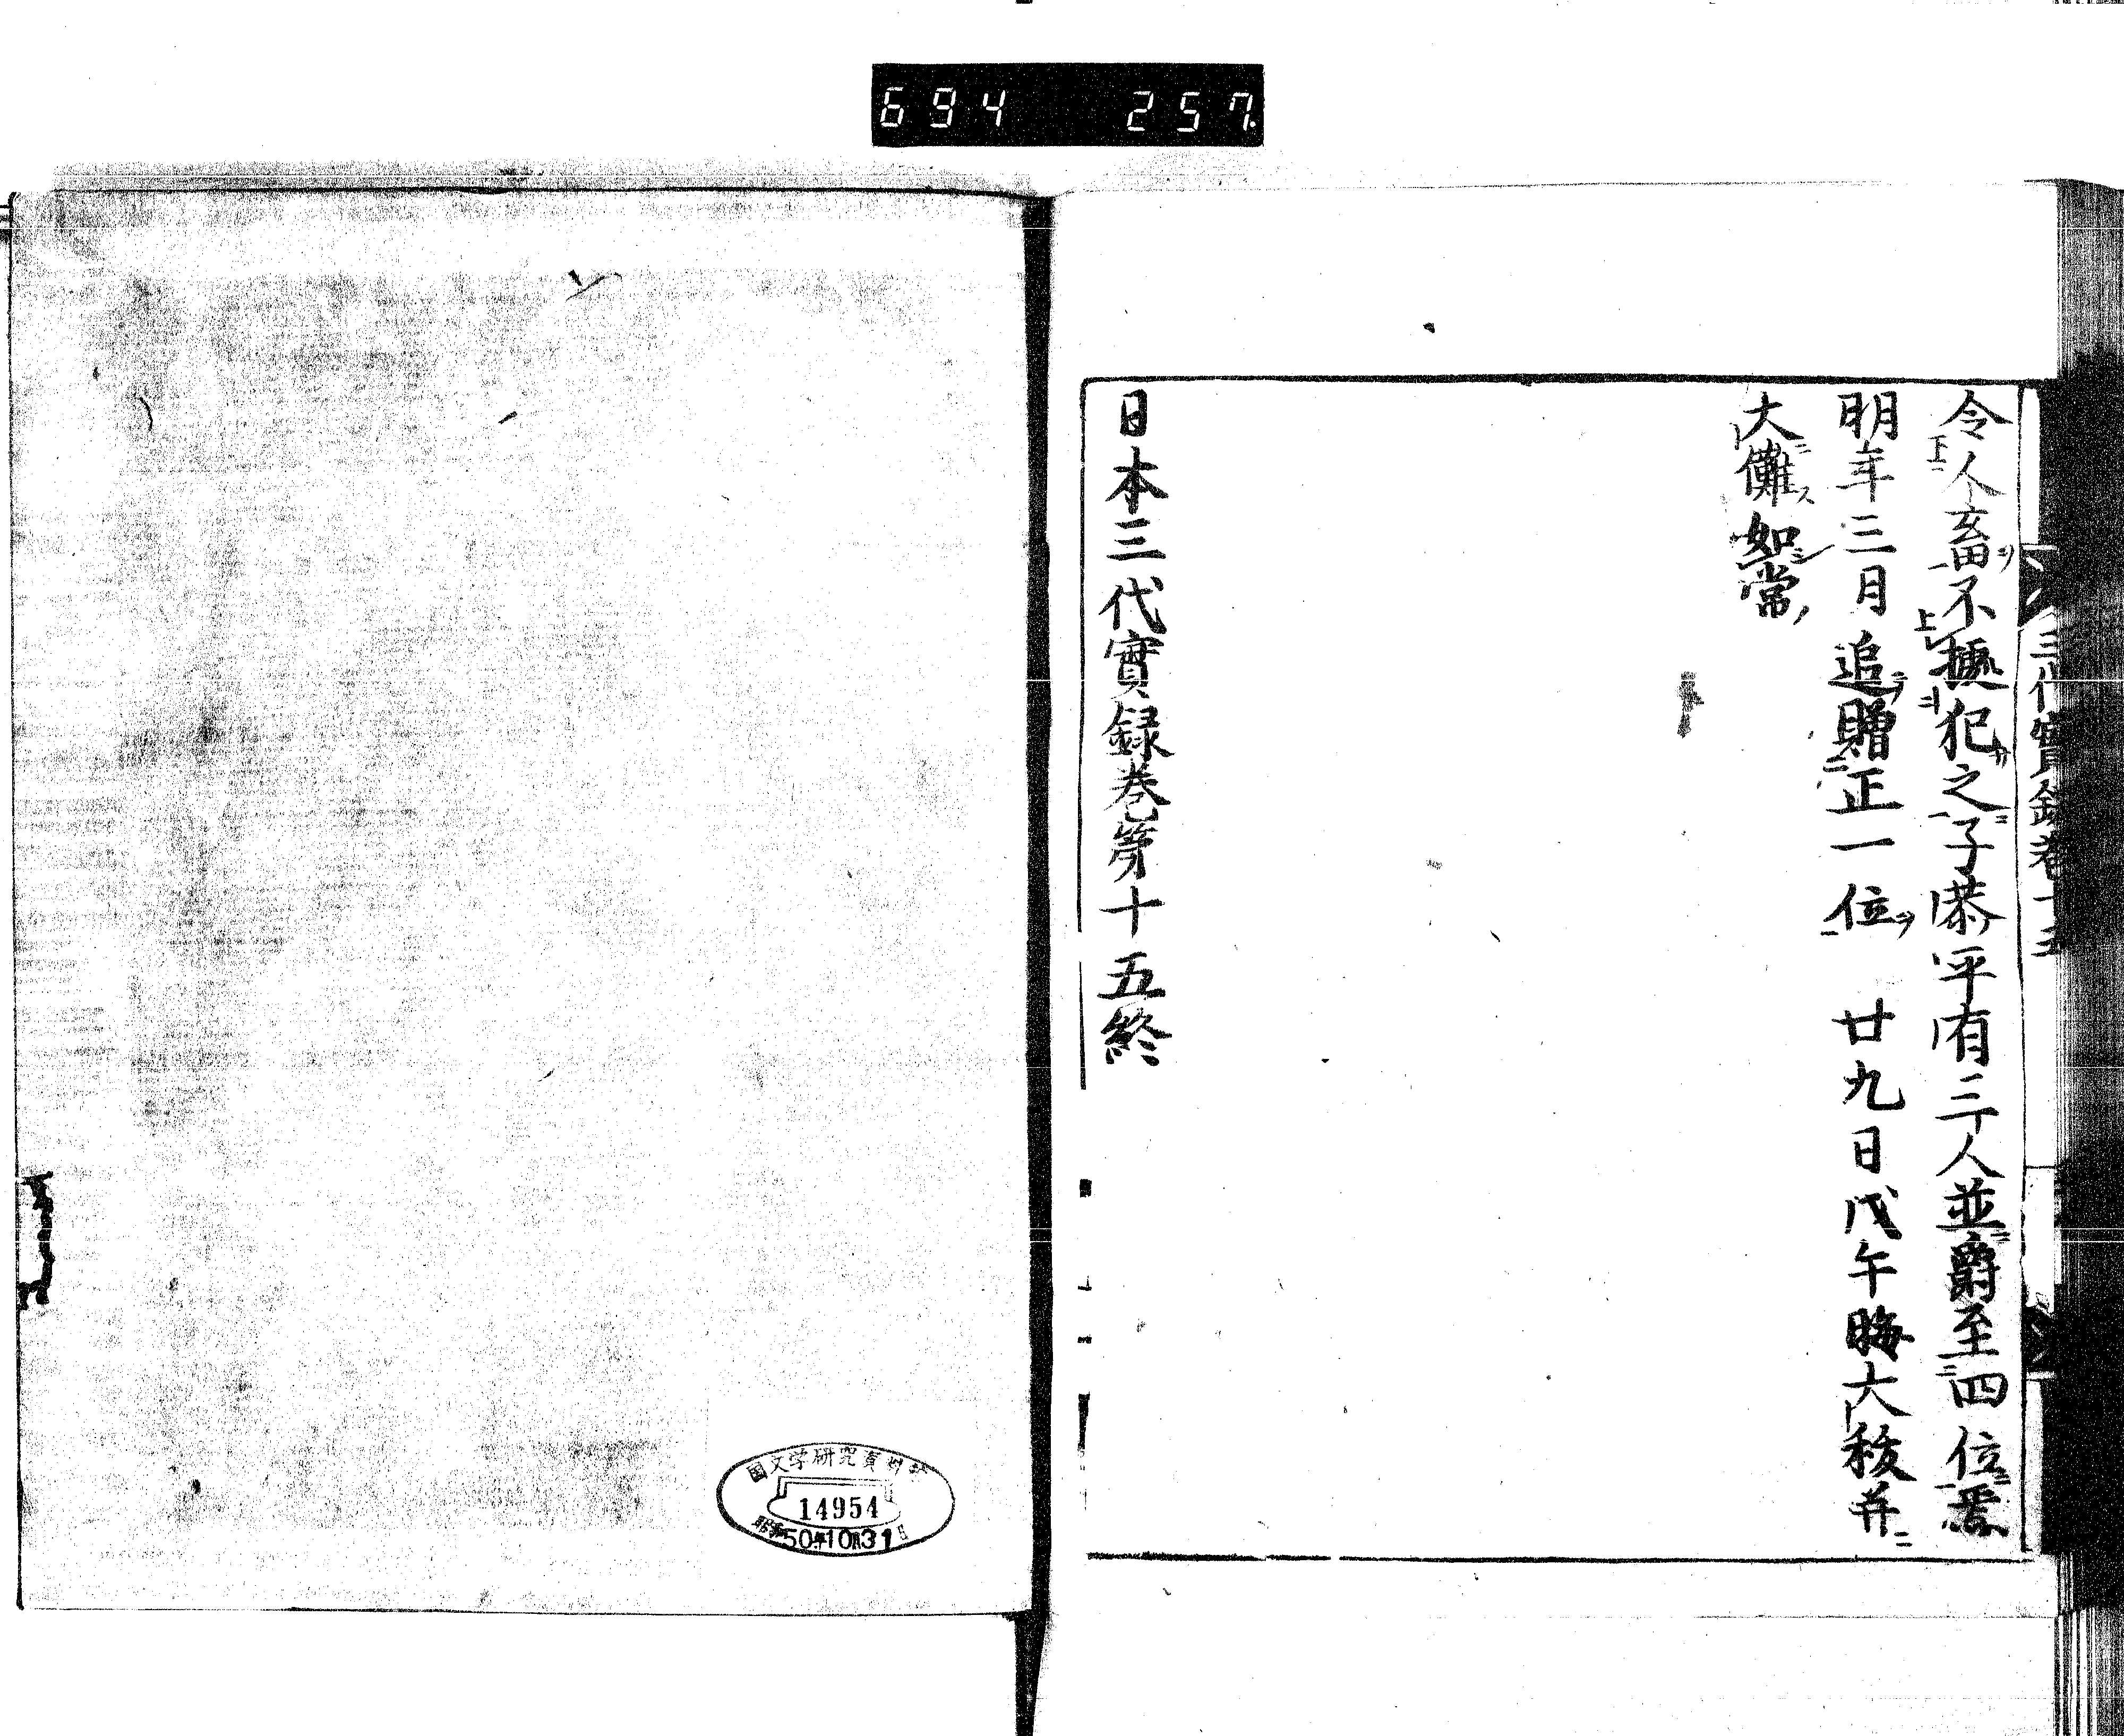 694 257
三代實録卷十五
令人畜不攪犯之子恭平有三人並爵至四位焉
明年三月追贈正一位 廿九日戊午晦大祓并
大儺如常
日本三代實録卷第十五終
14954
50年10月31